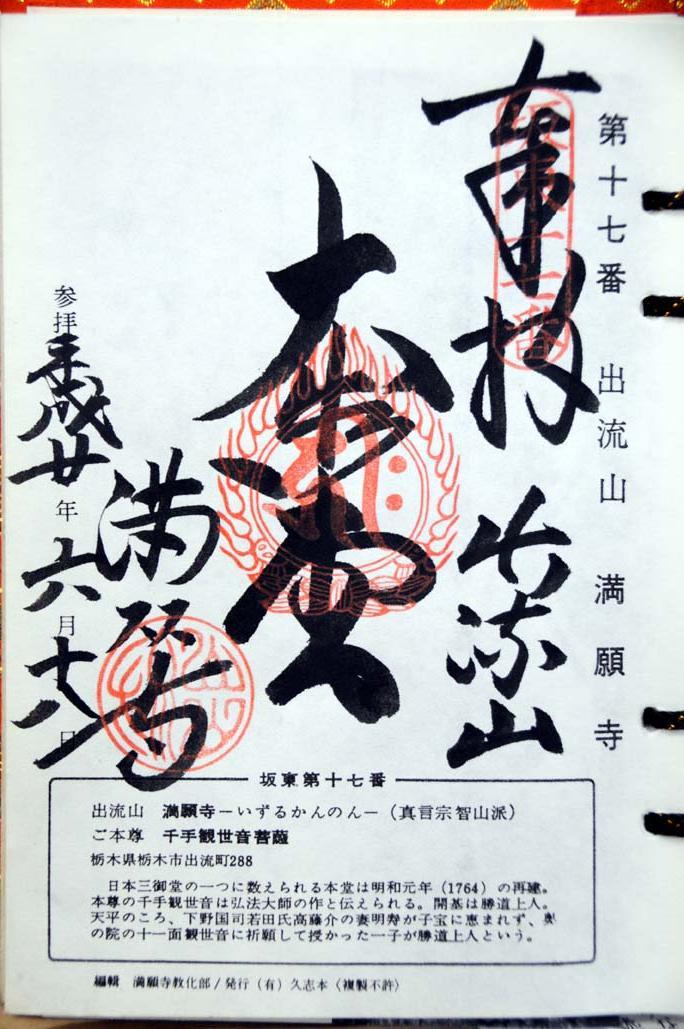 第十七番 出流山 満願寺
奉拝 出流山
坂東十七番
大悲殿
満願寺
参拝平成廿年六月十八日
坂東第十七番
出流山 満願寺−いずるかんのん−（真言宗智山派）
ご本尊 千手観世音菩薩
栃木県栃木市出流町288
日本三御堂の一つに数えられる本堂は明和元年（1764）の再建。
本尊の千手観世音は弘法大師の作と伝えられる。開基は勝道上人。
天平のころ、下野国司若田氏高藤介の妻明寿が子宝に恵まれず、奥
の院の十一面観世音に祈願して授かった一子が勝道上人という。
編輯 満願寺教化部/発行（有）久志本〈複製不許〉